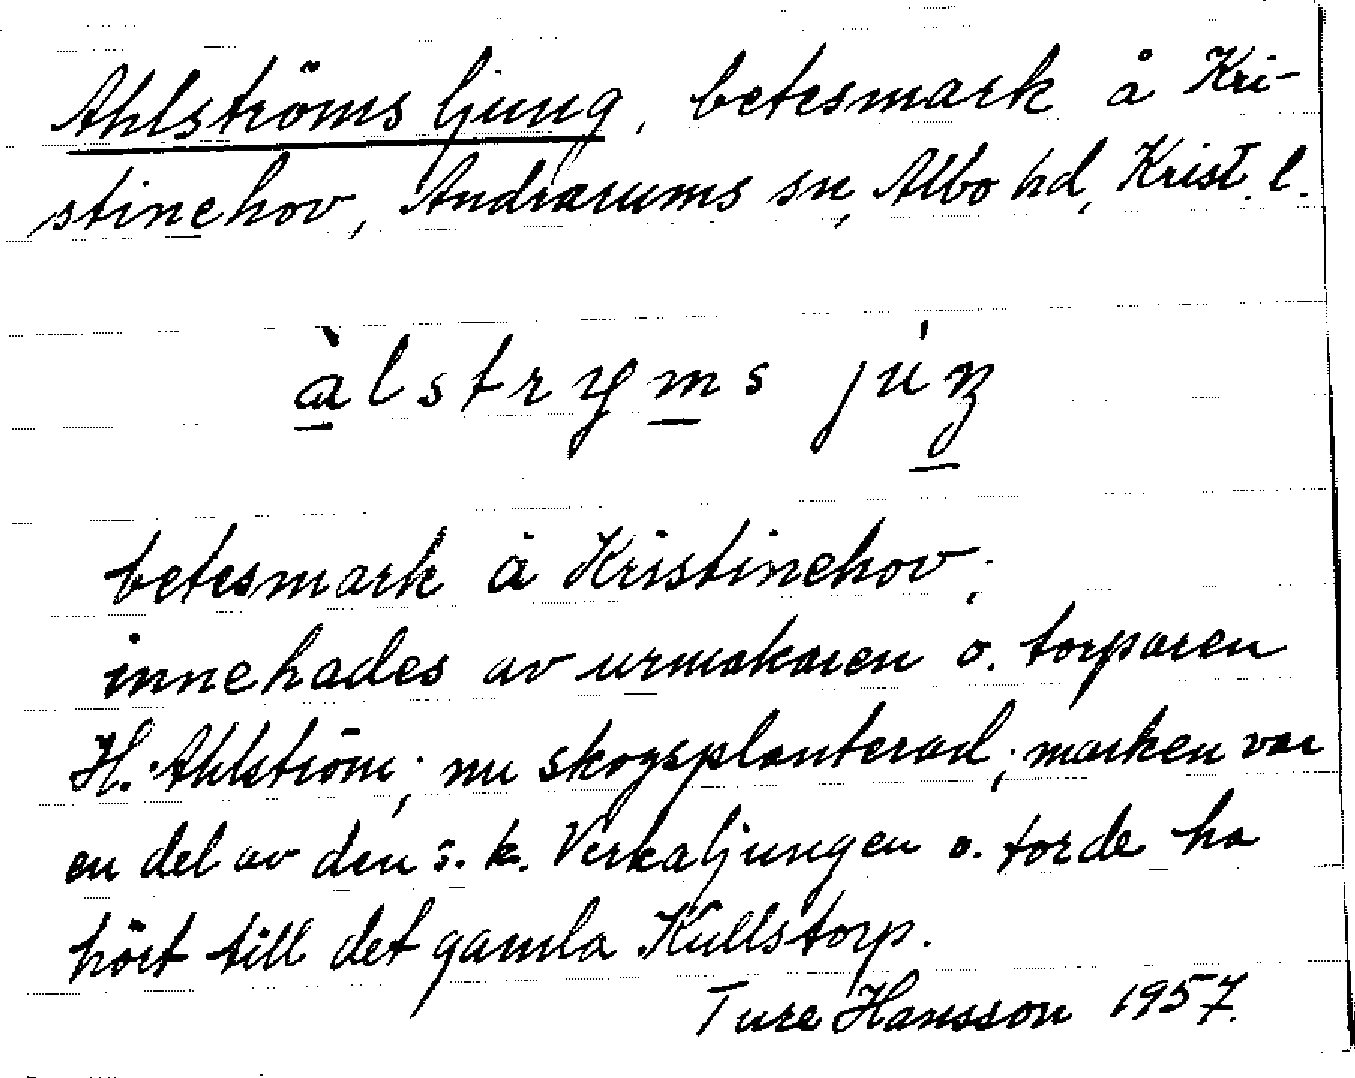 Ahlströms ljung, betesmark å Kri-
stinehov, Andrarums sn, Albo hd, Krist. l.
àlstryms júŋ
betesmark å Kristinehov;
innehades av urmakaren o. torparen
H. Ahlström; nu skogsplanterad; marken var
en del av den s. k. Verkaljungen o. torde ha
hört till det gamla Kullstorp.
Ture Hansson 1957.